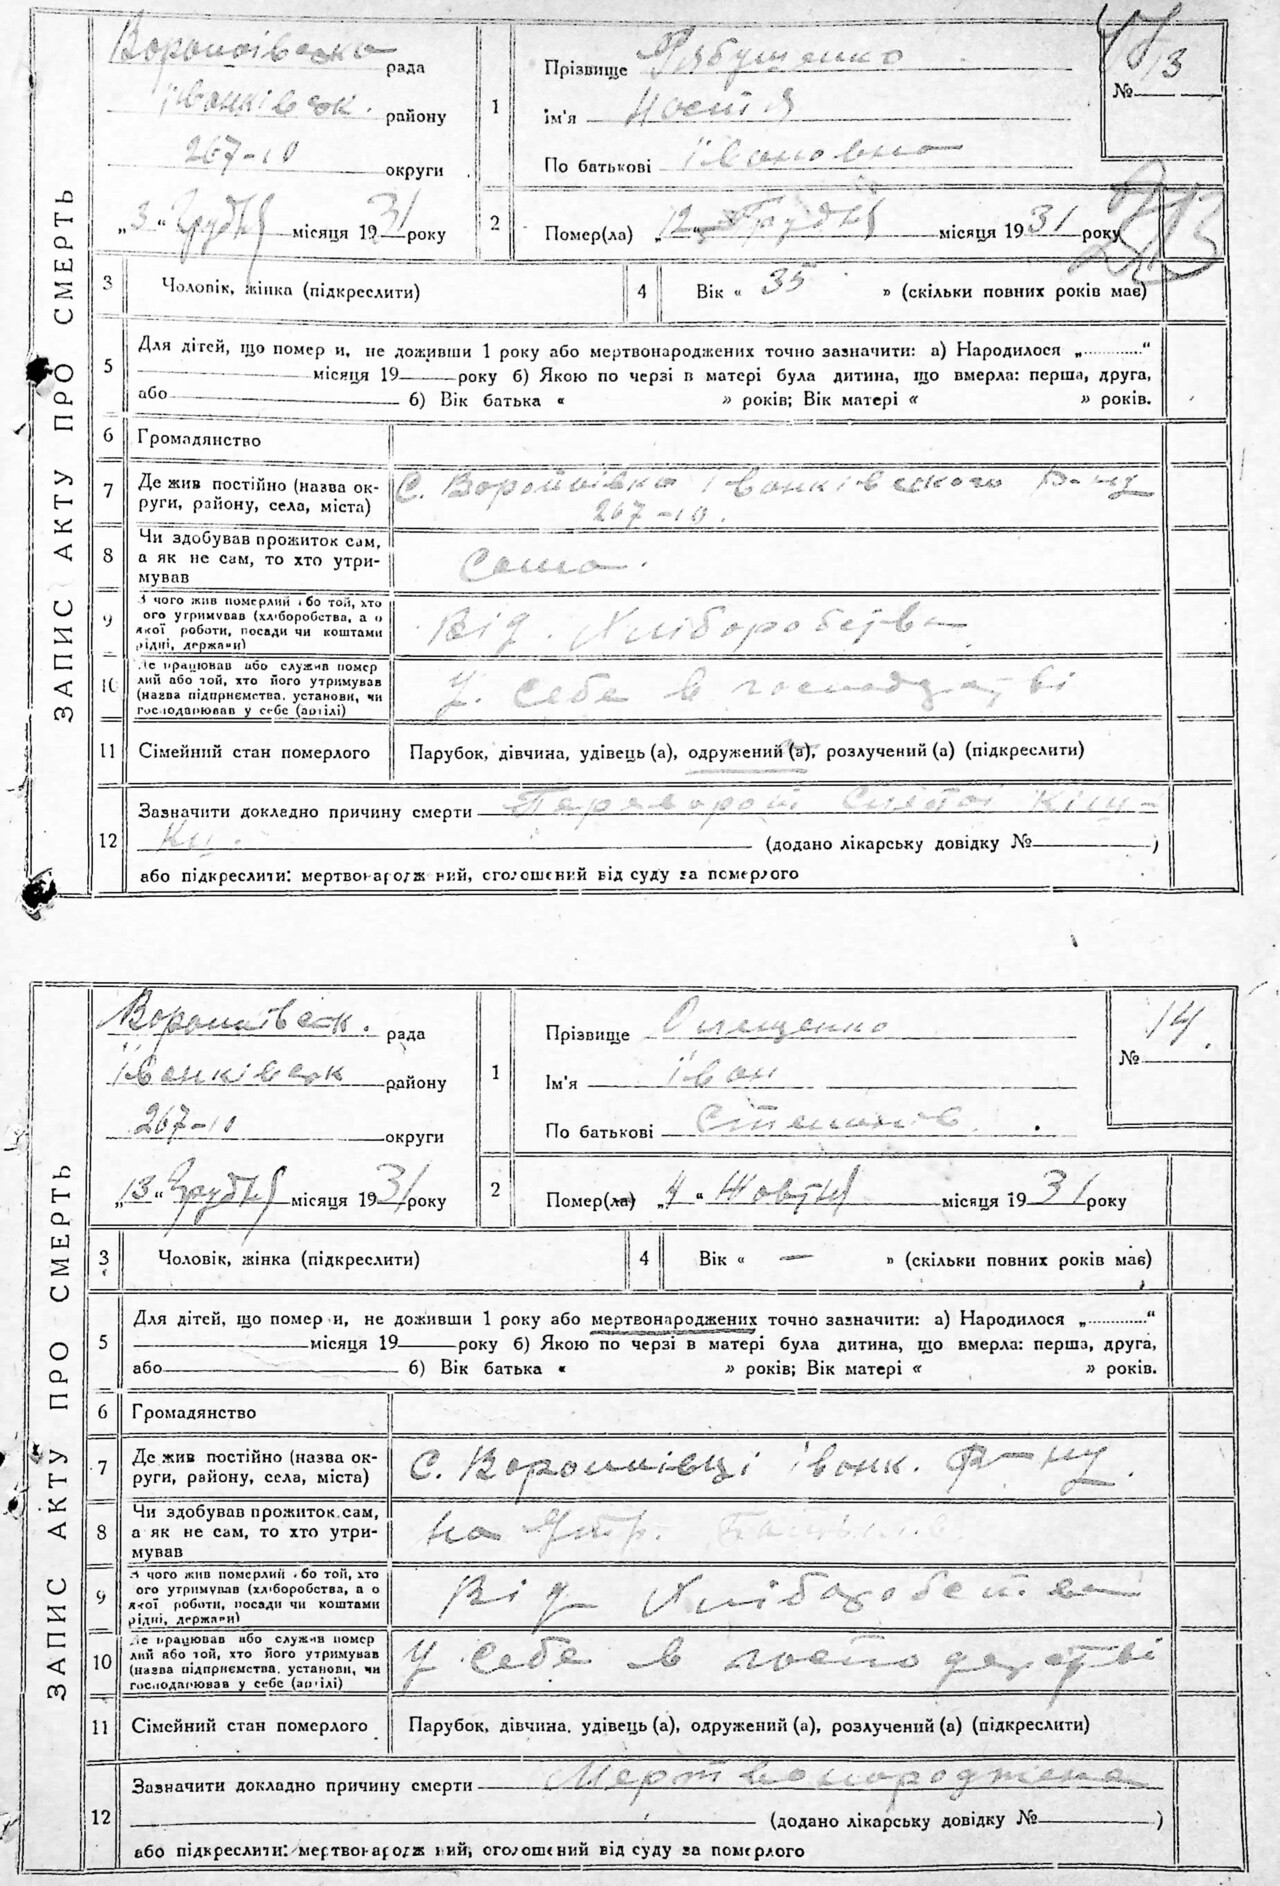 ЗАПИС АКТУ ПРО СМЕРТЬ
рада
району
267-10 округи
„3“ Грудня місяця 1931 року
№ 13
1 Прізвище Рябушенко
Ім'я Настя
По батькові Івановна
2 Помер(ла) „12“ Грудня місяця 1931 року
3 Чоловік, жінка (підкреслити)
4 Вік « 35 » (скільки повних років має)
5 Для дітей, що помер и, не доживши 1 року або мертвонароджених точно зазначити: а) Народилося „............“
місяця 19 року б) Якою по черзі в матері була дитина, що вмерла: перша, друга,
або б) Вік батька « » років; Вік матері « » років.
6 Громадянство
7 Де жив постійно (назва ок-
руги, району, села, міста)
С. Іванківского Р-ну
267-10.
8 Чи здобував прожиток сам,
а як не сам, то хто утри-
мував
Сама.
9 З чого жив померлий або той, хто
його утримував (хліборобства, а о
якої роботи, посади чи коштами
рідні, держави)
Від Хліборобства
10 Де працював або служив помер
лий або той, хто його утримував
(назва підприємства, установи, чи
господарював у себе (артілі)
У себе в господарстві
11 Сімейний стан померлого
Парубок, дівчина, удівець (а), одружений (а), розлучений (а) (підкреслити)
12 Зазначити докладно причину смерти Кіш-
ки. (додано лікарську довідку № )
або підкреслити: мертвонародж ний, оголошений від суду за померлого
ЗАПИС АКТУ ПРО СМЕРТЬ
рада
Іванківськ району
267-10 округи
„13“ Грудня місяця 1931 року
№ 14.
1 Прізвище Олещенко
Ім'я Іван
По батькові Степанов.
2 Помер(ла) „4“ Жовтня місяця 1931 року
3 Чоловік, жінка (підкреслити)
4 Вік « — » (скільки повних років має)
5 Для дітей, що помер и, не доживши 1 року або мертвонароджених точно зазначити: а) Народилося „............“
місяця 19 року б) Якою по черзі в матері була дитина, що вмерла: перша, друга,
або б) Вік батька « » років; Вік матері « » років.
6 Громадянство
7 Де жив постійно (назва ок-
руги, району, села, міста)
С. Іванк. Р-ну.
8 Чи здобував прожиток сам,
а як не сам, то хто утри-
мував
на утр.
9 З чого жив померлий або той, хто
його утримував (хліборобства, а о
якої роботи, посади чи коштами
рідні, держави)
Від Хліборобства
10 Де працював або служив помер
лий або той, хто його утримував
(назва підприємства, установи, чи
господарював у себе (артілі)
У себе в господарстві
11 Сімейний стан померлого
Парубок, дівчина, удівець (а), одружений (а), розлучений (а) (підкреслити)
12 Зазначити докладно причину смерти Мертвонароджена
(додано лікарську довідку № )
або підкреслити: мертвонародж ний, оголошений від суду за померлого